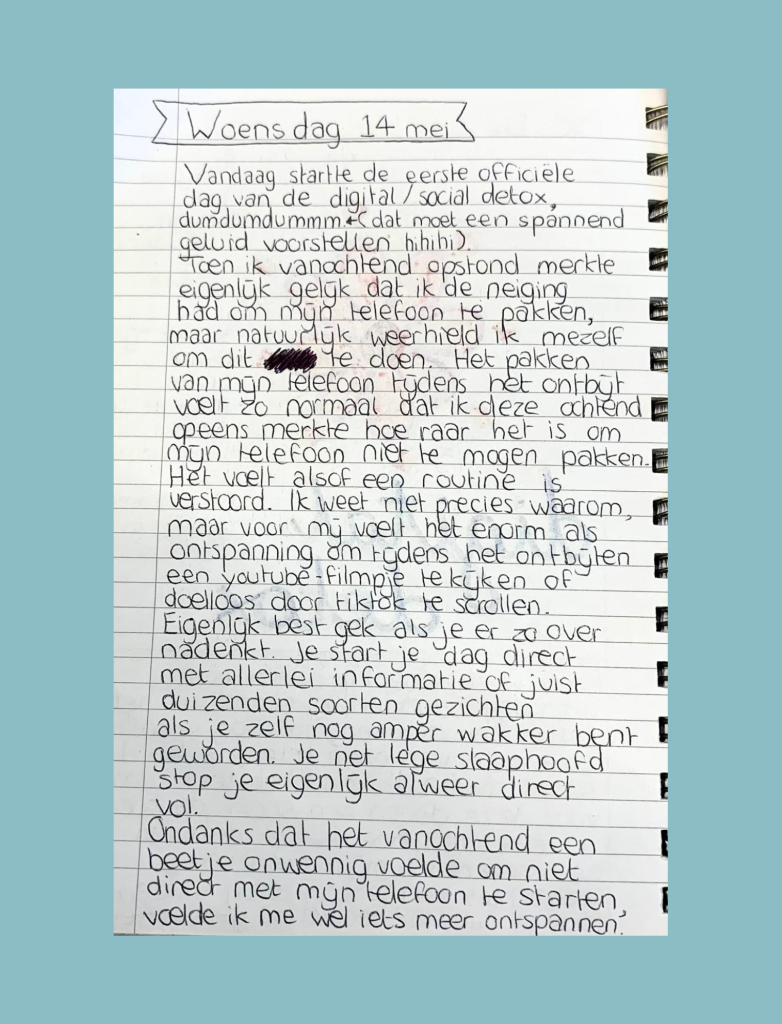 Woensdag 14 mei
Vandaag startte de eerste officiële
dag van de digital/social detox,
dumdumdummm ← (dat moet een spannend
geluid voorstellen hihihi).
Toen ik vanochtend opstond merkte
eigenlijk gelijk dat ik de neiging
had om mijn telefoon te pakken,
maar natuurlijk weerhield ik mezelf
om dit te doen. Het pakken
van mijn telefoon tijdens het ontbijt
voelt zo normaal dat ik deze ochtend
opeens merkte hoe raar het is om
mijn telefoon niet te mogen pakken.
Het voelt alsof een routine is
verstoord. Ik weet niet precies waarom,
maar voor mij voelt het enorm als
ontspanning om tijdens het ontbijten
een youtube-filmpje te kijken of
doelloos door tiktok te scrollen.
Eigenlijk best gek als je er zo over
nadenkt. Je start je dag direct
met allerlei informatie of juist
duizenden soorten gezichten
als je zelf nog amper wakker bent
geworden. Je net lege slaaphoofd
stop je eigenlijk alweer direct
vol.
Ondanks dat het vanochtend een
beetje onwennig voelde om niet
direct met mijn telefoon te starten,
voelde ik me wel iets meer ontspannen.